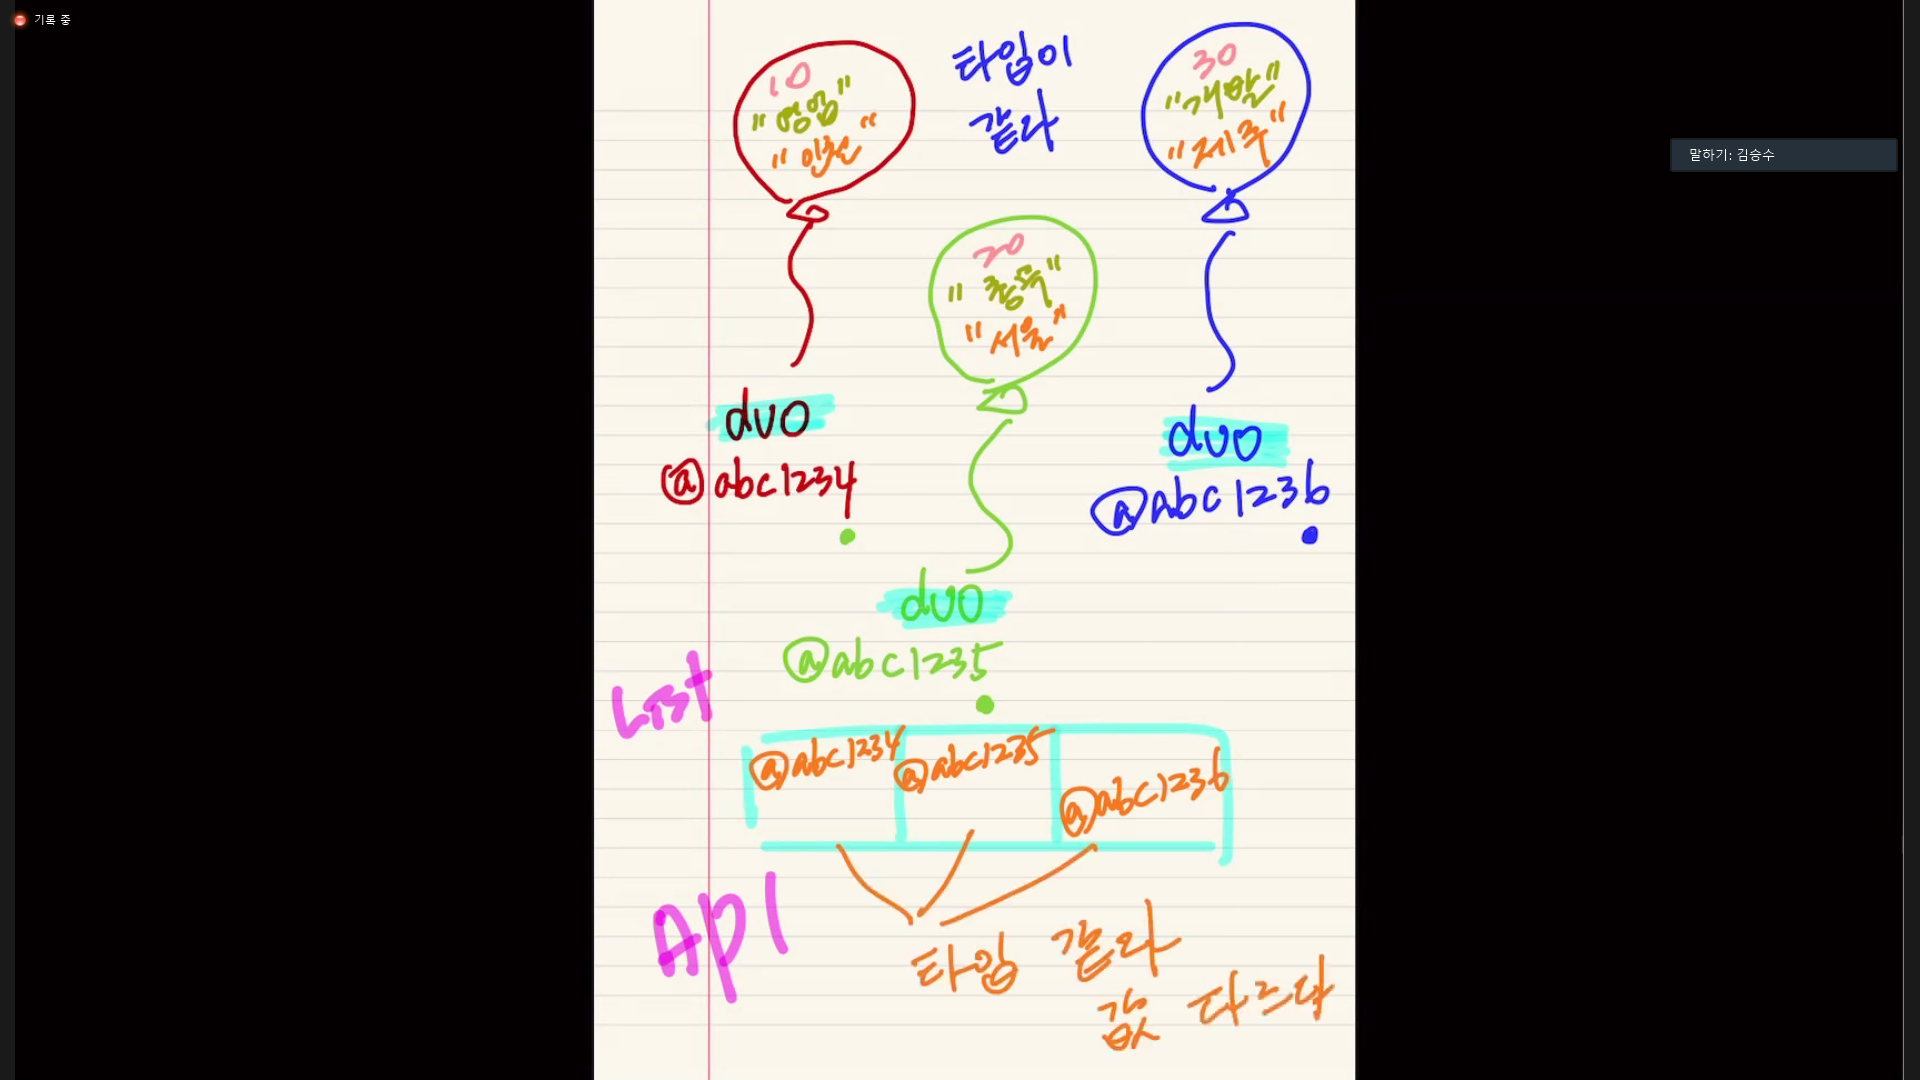 기록 중
말하기: 김승수
10
"영업"
"인천"
타입이
같다
30
"개발"
"제주"
20
"총무"
"서울"
dvo
@abc1234
dvo
@abc1236
dvo
@abc1235
List
@abc1234 @abc1235 @abc1236
API
타입 같다
값 다르다